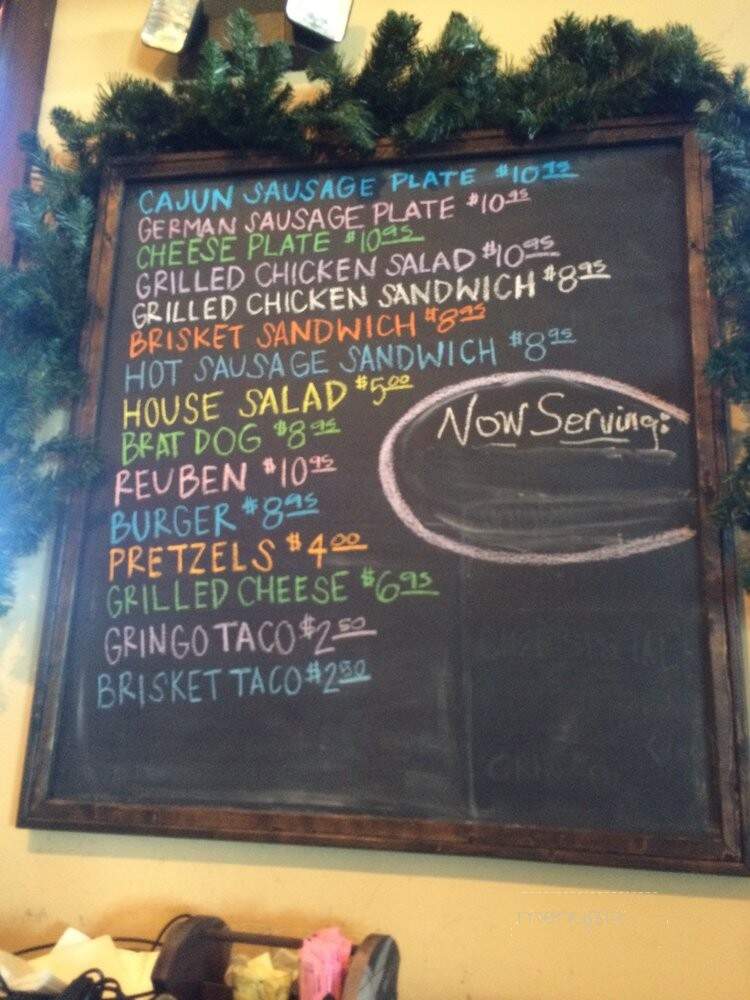 CAJUN SAUSAGE PLATE $10.95
GERMAN SAUSAGE PLATE $10.95
CHEESE PLATE $10.95
GRILLED CHICKEN SALAD $10.95
GRILLED CHICKEN SANDWICH $8.95
BRISKET SANDWICH $8.95
HOT SAUSAGE SANDWICH $8.95
HOUSE SALAD $5.00
Now Serving:
BRAT DOG $8.95
REUBEN $10.95
BURGER $8.95
PRETZELS $4.00
GRILLED CHEESE $6.95
GRINGO TACO $2.50
BRISKET TACO $2.50